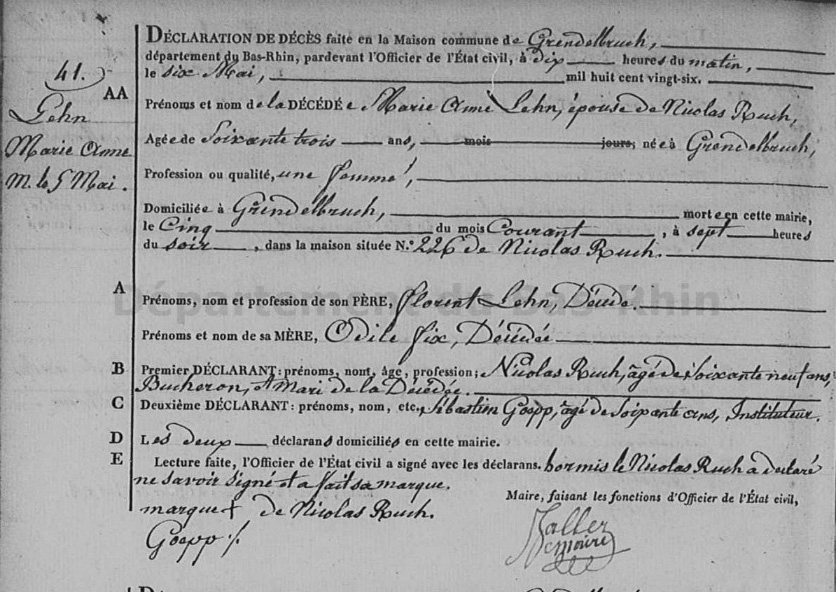 41.
Lehn
Marie Anne
M. le 5 Mai.
DÉCLARATION DE DÉCÈS faite en la Maison commune de Grendelbruch,
département du Bas-Rhin, pardevant l'Officier de l'État civil, à dix heures du matin,
le six Mai, mil huit cent vingt-six.
AA
Prénoms et nom de la DÉCÉDÉe Marie Anne Lehn, épouse de Nicolas Ruch,
Agée de Soixante trois ans, mois jours; née à Grendelbruch,
Profession ou qualité, une femme,
Domiciliée à Grendelbruch, morte en cette mairie,
le Cinq du mois Courant, à sept heures
du soir, dans la maison située N.° 226 de Nicolas Ruch.
A
Prénoms, nom et profession de son PÈRE, Florent Lehn, Décédé.
Département du Bas-Rhin
Prénoms et nom de sa MÈRE, Odile fix, Décédée
B Premier DÉCLARANT: prénoms, nom, âge, profession; Nicolas Ruch, âgé de Soixante neuf ans
Bucheron, et Mari de la Décédée.
C Deuxième DÉCLARANT: prénoms, nom, etc., Sébastien Goepp, âgé de Soixante ans, Instituteur.
D Les deux déclarans domiciliés en cette mairie.
E Lecture faite, l'Officier de l'État civil a signé avec les déclarans. hormis le Nicolas Ruch a declaré
ne savoir signé et a fait sa marque.
Maire, faisant les fonctions d'Officier de l'État civil,
marque + de Nicolas Ruch.
Goepp